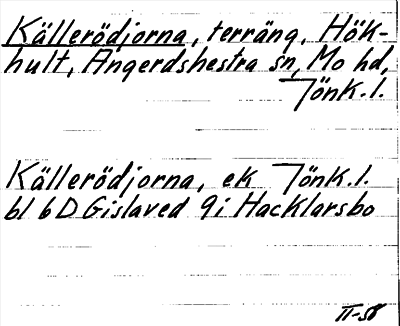 Källerödjorna, terräng, Hök-
hult, Ångerdshestra sn, Mo hd,
Jönk. l.
Källerödjorna, ek Jönk. l.
bl 6D Gislaved 9i Hacklarsbo
II-58